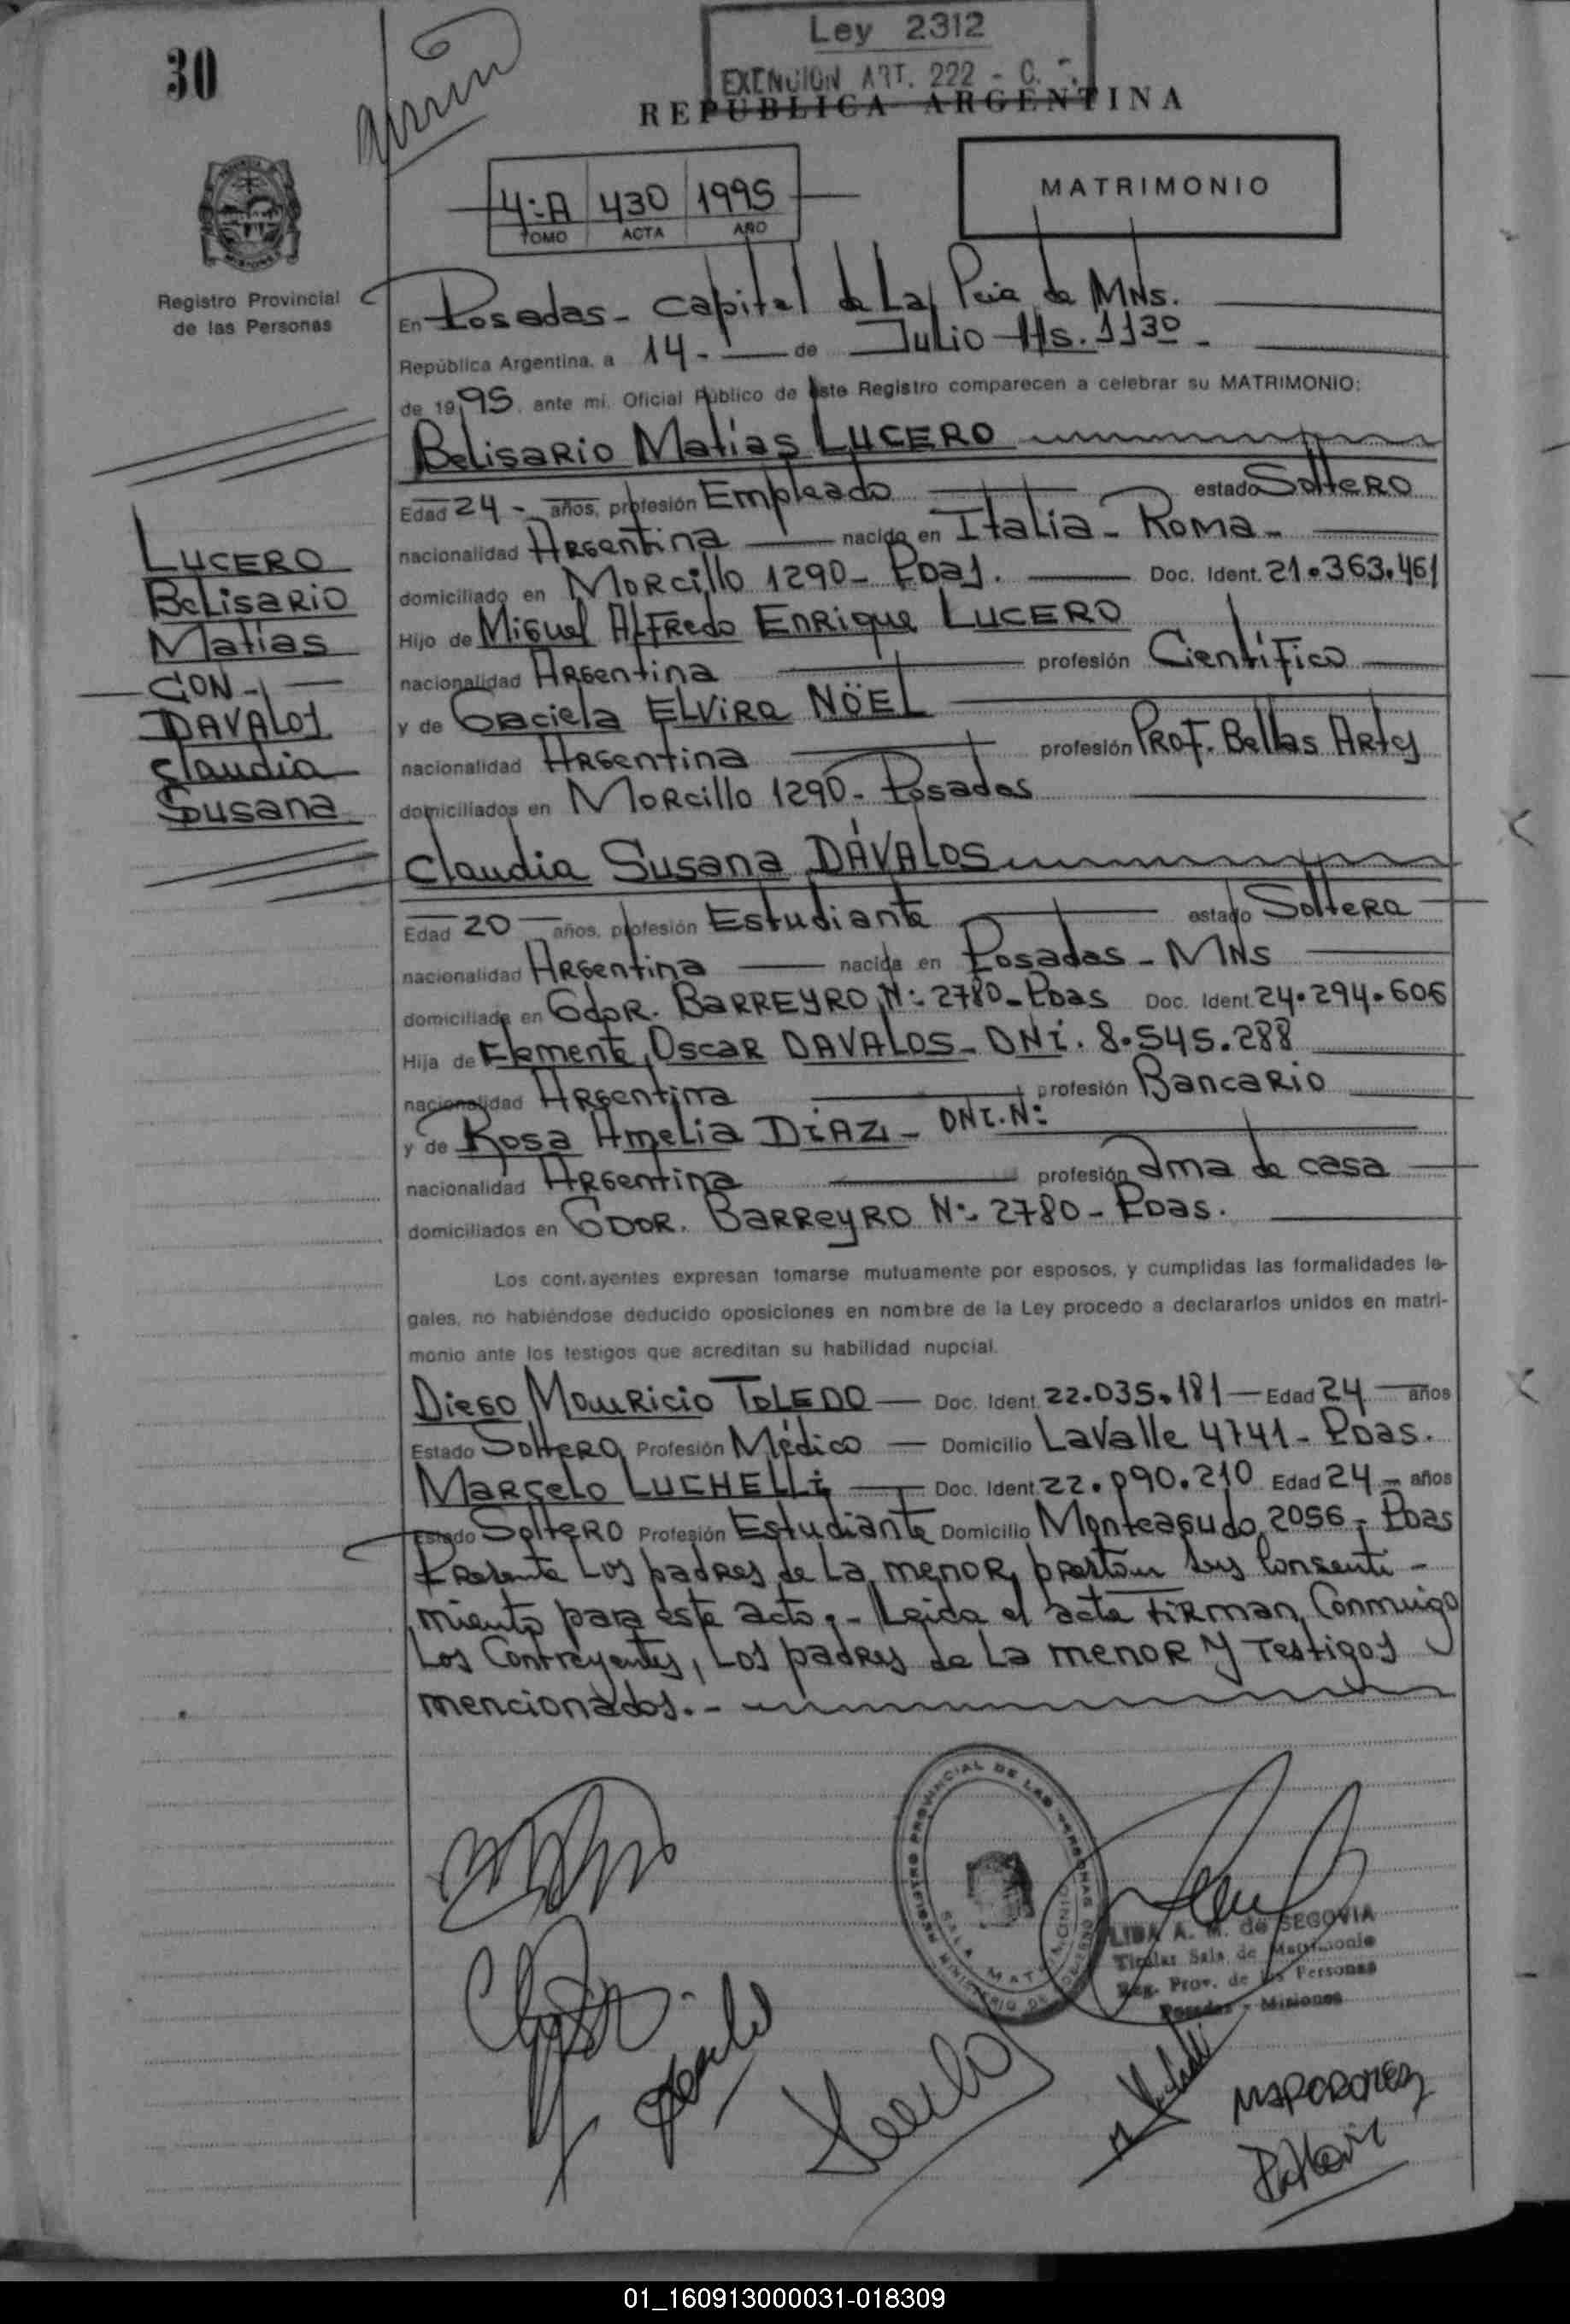 30
Ley 2312
EXENCION ART. 222 - C.
REPUBLICA ARGENTINA
MATRIMONIO
4:A 430 1995
TOMO ACTA AÑO
Registro Provincial
de las Personas
En Posadas - Capital de La Pcia de MNs.
República Argentina, a 14 - de Julio Hs. 1130 -
de 1995, ante mi, Oficial Público de este Registro comparecen a celebrar su MATRIMONIO:
Belisario Matias LUCERO
Edad 24 - años, profesión Empleado estado Soltero
nacionalidad Argentina nacido en Italia - Roma -
domiciliado en Morcillo 1290 - Pdas. Doc. Ident. 21.363.461
Hijo de Miguel Alfredo Enrique LUCERO
nacionalidad Argentina profesión Científico
y de Graciela Elvira NÖEL
nacionalidad Argentina profesión Prof. Bellas Artes
domiciliados en Morcillo 1290 - Posadas
LUCERO
Belisario
Matias
- CON -
DAVALOS
Claudia
Susana
Claudia Susana DÁVALOS
Edad 20 años, profesión Estudiante estado Soltera
nacionalidad Argentina nacida en Posadas - MNs
domiciliada en Gdor. Barreyro N: 2780 - Pdas Doc. Ident. 24.294.606
Hija de Clemente Oscar DAVALOS - DNi. 8.545.288
nacionalidad Argentina profesión Bancario
y de Rosa Amelia DIAZ - DNI. N:
nacionalidad Argentina profesión ama de casa
domiciliados en Gdor. Barreyro N: 2780 - Pdas.
Los contrayentes expresan tomarse mutuamente por esposos, y cumplidas las formalidades le-
gales, no habiéndose deducido oposiciones en nombre de la Ley procedo a declararlos unidos en matri-
monio ante los testigos que acreditan su habilidad nupcial.
Diego Mauricio TOLEDO - Doc. Ident. 22.035.181 - Edad 24 - años
Estado Soltero Profesión Médico - Domicilio Lavalle 4741 - Pdas.
Marcelo LUCHELLi - Doc. Ident. 22.090.210 Edad 24 - años
Estado Soltero Profesión Estudiante Domicilio Monteagudo 2056 - Pdas
Presente Los padres de La menor, prestan sus consenti -
miento para este acto. - Leida el acta firman, Conmigo
Los Contrayentes, Los padres de La menor y Testigos
mencionados. -
REGISTRO PROVINCIAL DE LAS PERSONAS
SALA MATRIMONIO
MINISTERIO DE GOBIERNO
LIDA A. M. de SEGOVIA
Titular Sala de Matrimonio
Reg. Prov. de las Personas
Posadas - Misiones
01_160913000031-018309